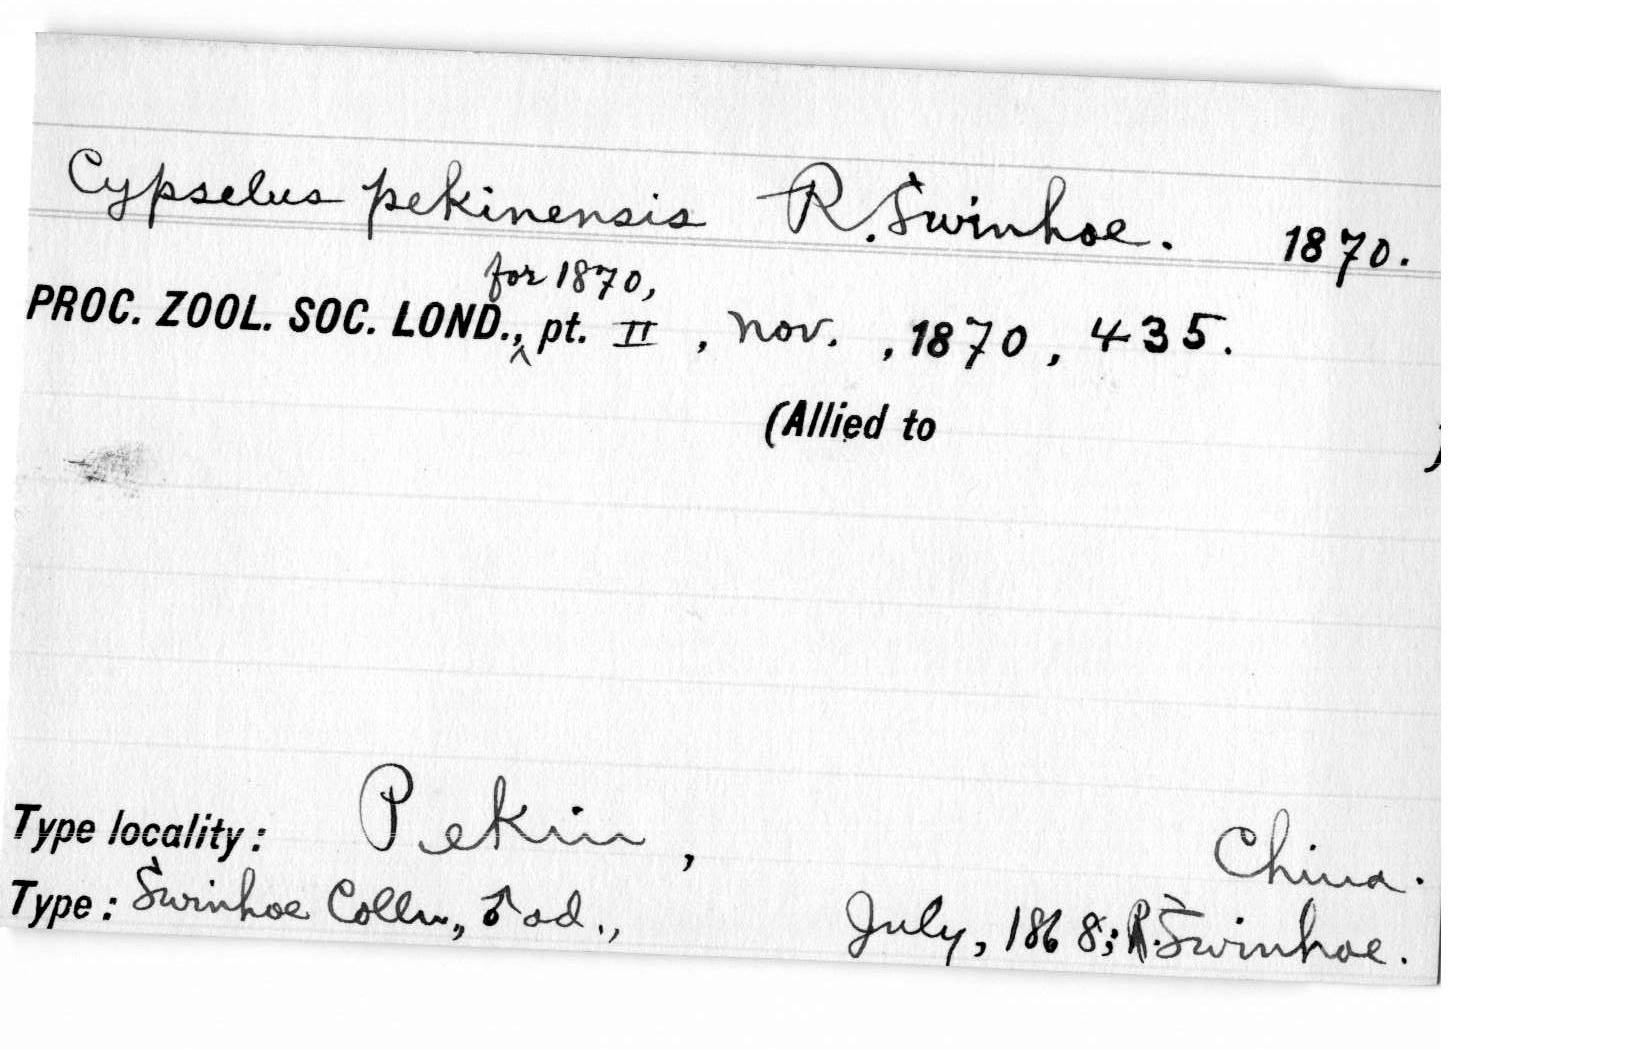 Cypselus pekinensis R. Swinhoe. 1870.
for 1870,
PROC. ZOOL. SOC. LOND., ^ pt. II, Nov., 1870, 435.
(Allied to )
Type locality: Pekin, China.
Type: Swinhoe Colln., ♂ ad., July, 1868; R. Swinhoe.